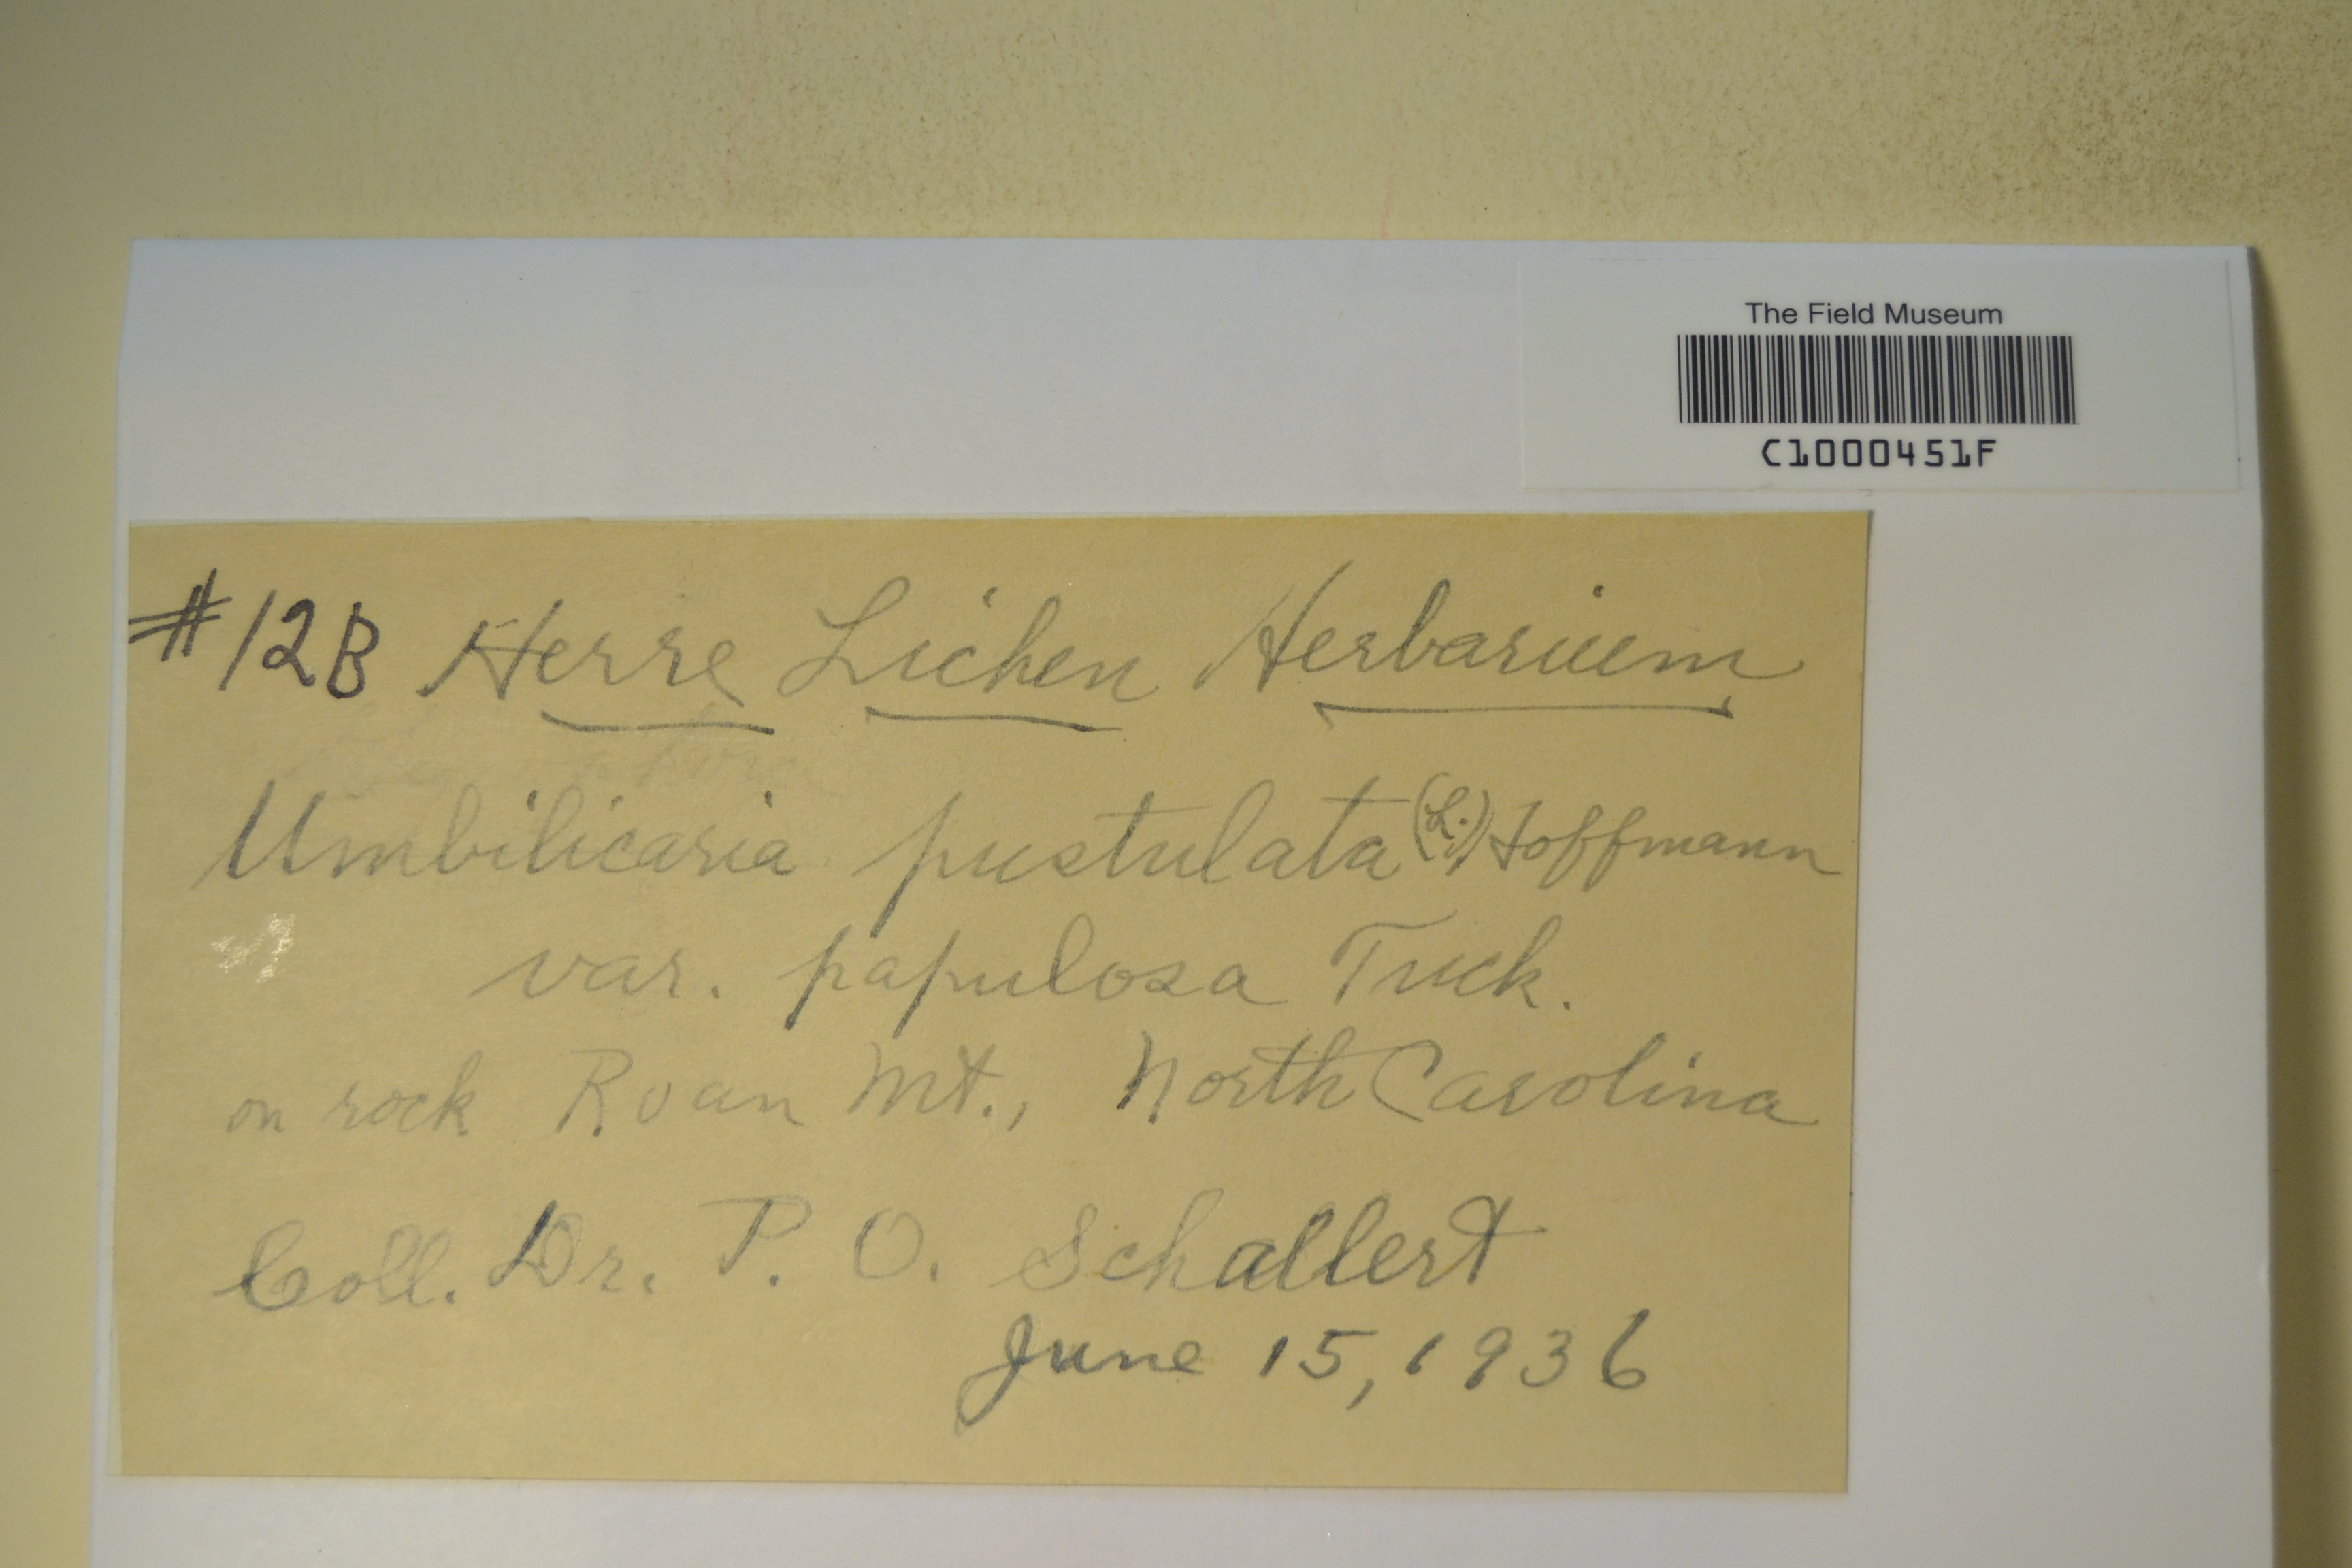 The Field Museum
C1000451F
#12B Herre Lichen Herbarium
Umbilicaria pustulata (L.) Hoffmann
var. papulosa Tuck.
on rock Roan Mt., North Carolina
Coll. Dr. P. O. Schallert
June 15, 1936